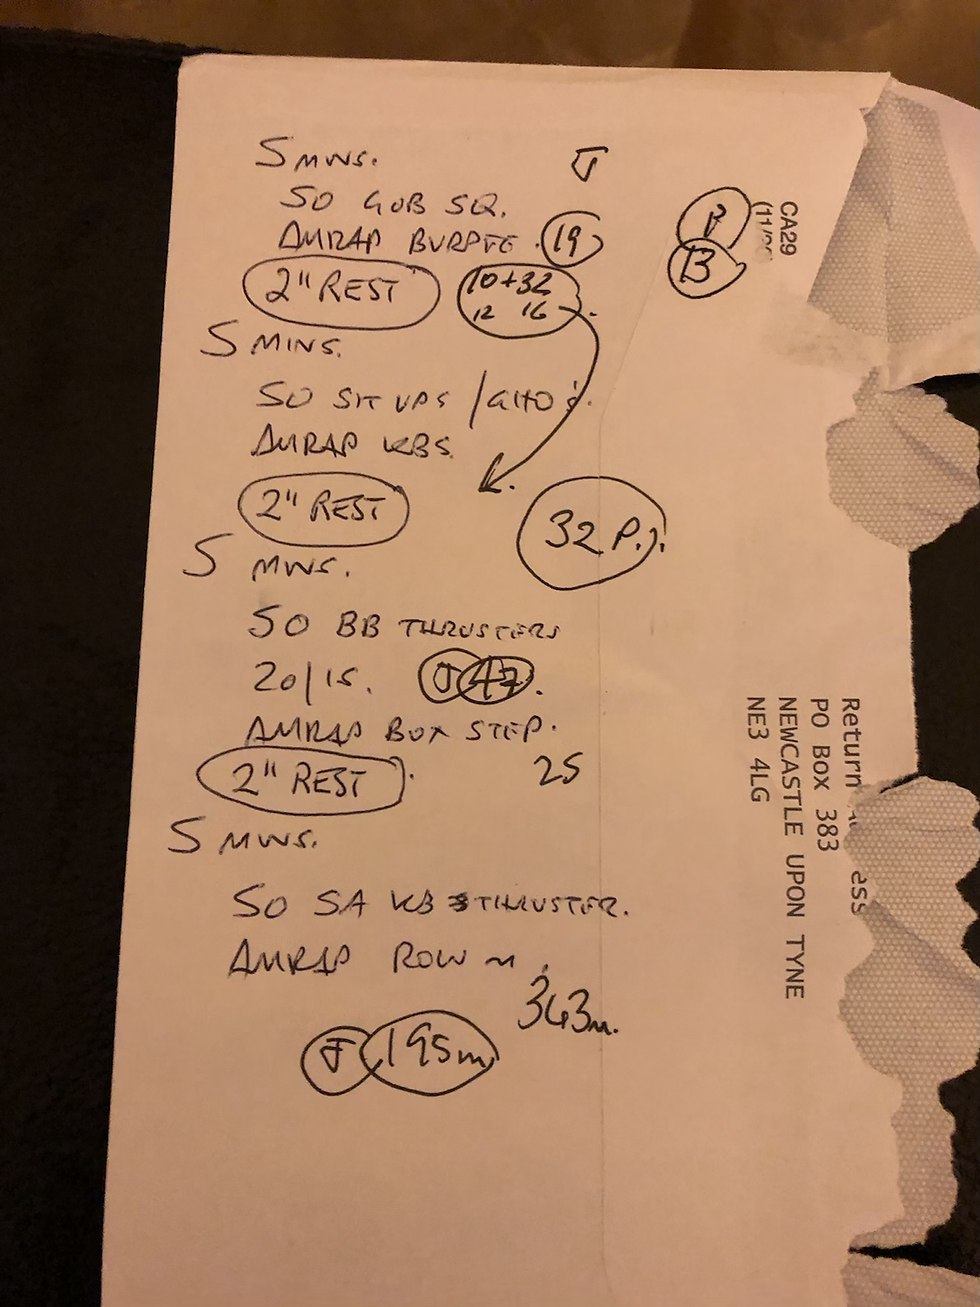 5 MINS.
J
50 GOB SQ.
AMRAP BURPEE. 19
P
B
2" REST
10+32
12 16
5 MINS.
50 SIT UPS / GHD's.
AMRAP KBS.
2" REST
32 P.J.
5 MINS.
50 BB THRUSTERS
20/15. J 47.
AMRAP BOX STEP.
2" REST
25
5 MINS.
50 SA KB THRUSTER.
AMRAP ROW m.
343m.
J 195m
CA29
(11/
Return
PO BOX 383
NEWCASTLE UPON TYNE
NE3 4LG